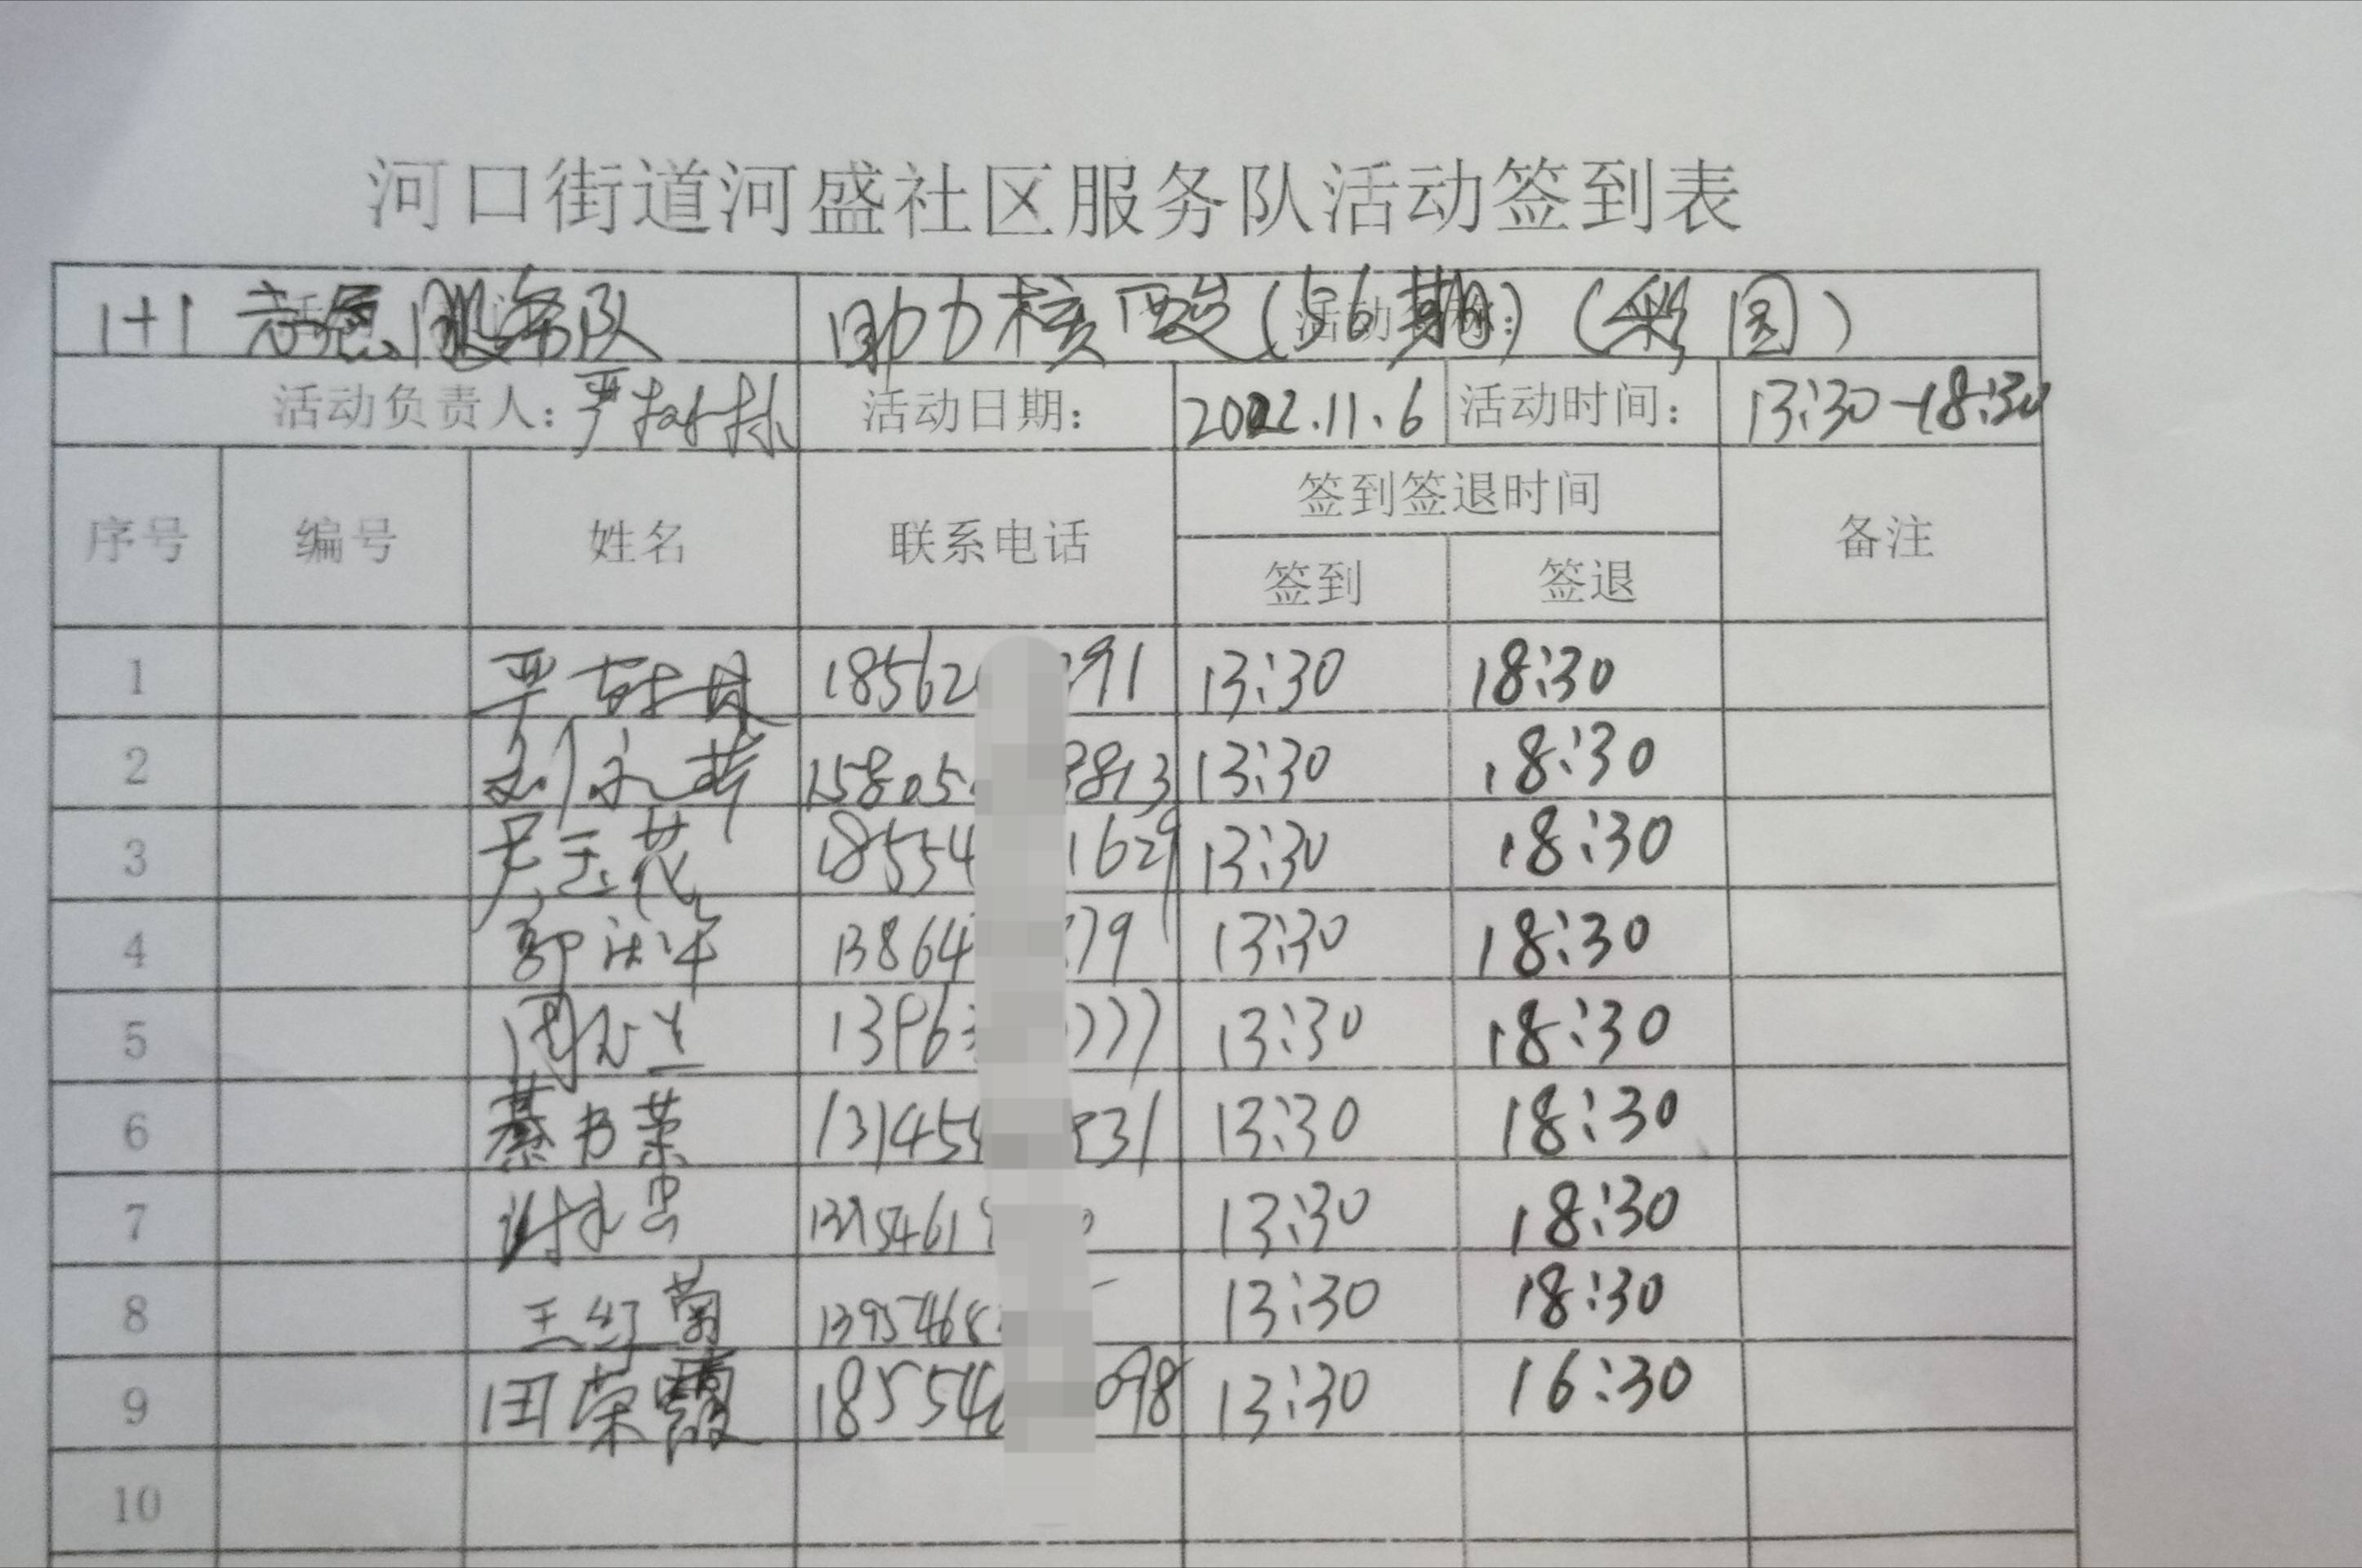 河口街道河盛社区服务队活动签到表
1+1 志愿服务队 助力核酸(56期)(彩园)
活动负责人: 严 活动日期: 2022.11.6 活动时间: 13:30-18:30
序号 编号 姓名 联系电话 签到签退时间 备注
签到 签退
1 严 18562 391 13:30 18:30
2 刘永芹 15805 8813 13:30 18:30
3 尹玉花 18554 1629 13:30 18:30
4 郭 13864 79 13:30 18:30
5 周 13963 777 13:30 18:30
6 綦书荣 131455 31 13:30 18:30
7 1395461 13:30 18:30
8 王红菊 1395468 13:30 18:30
9 田荣霞 18554 098 13:30 16:30
10